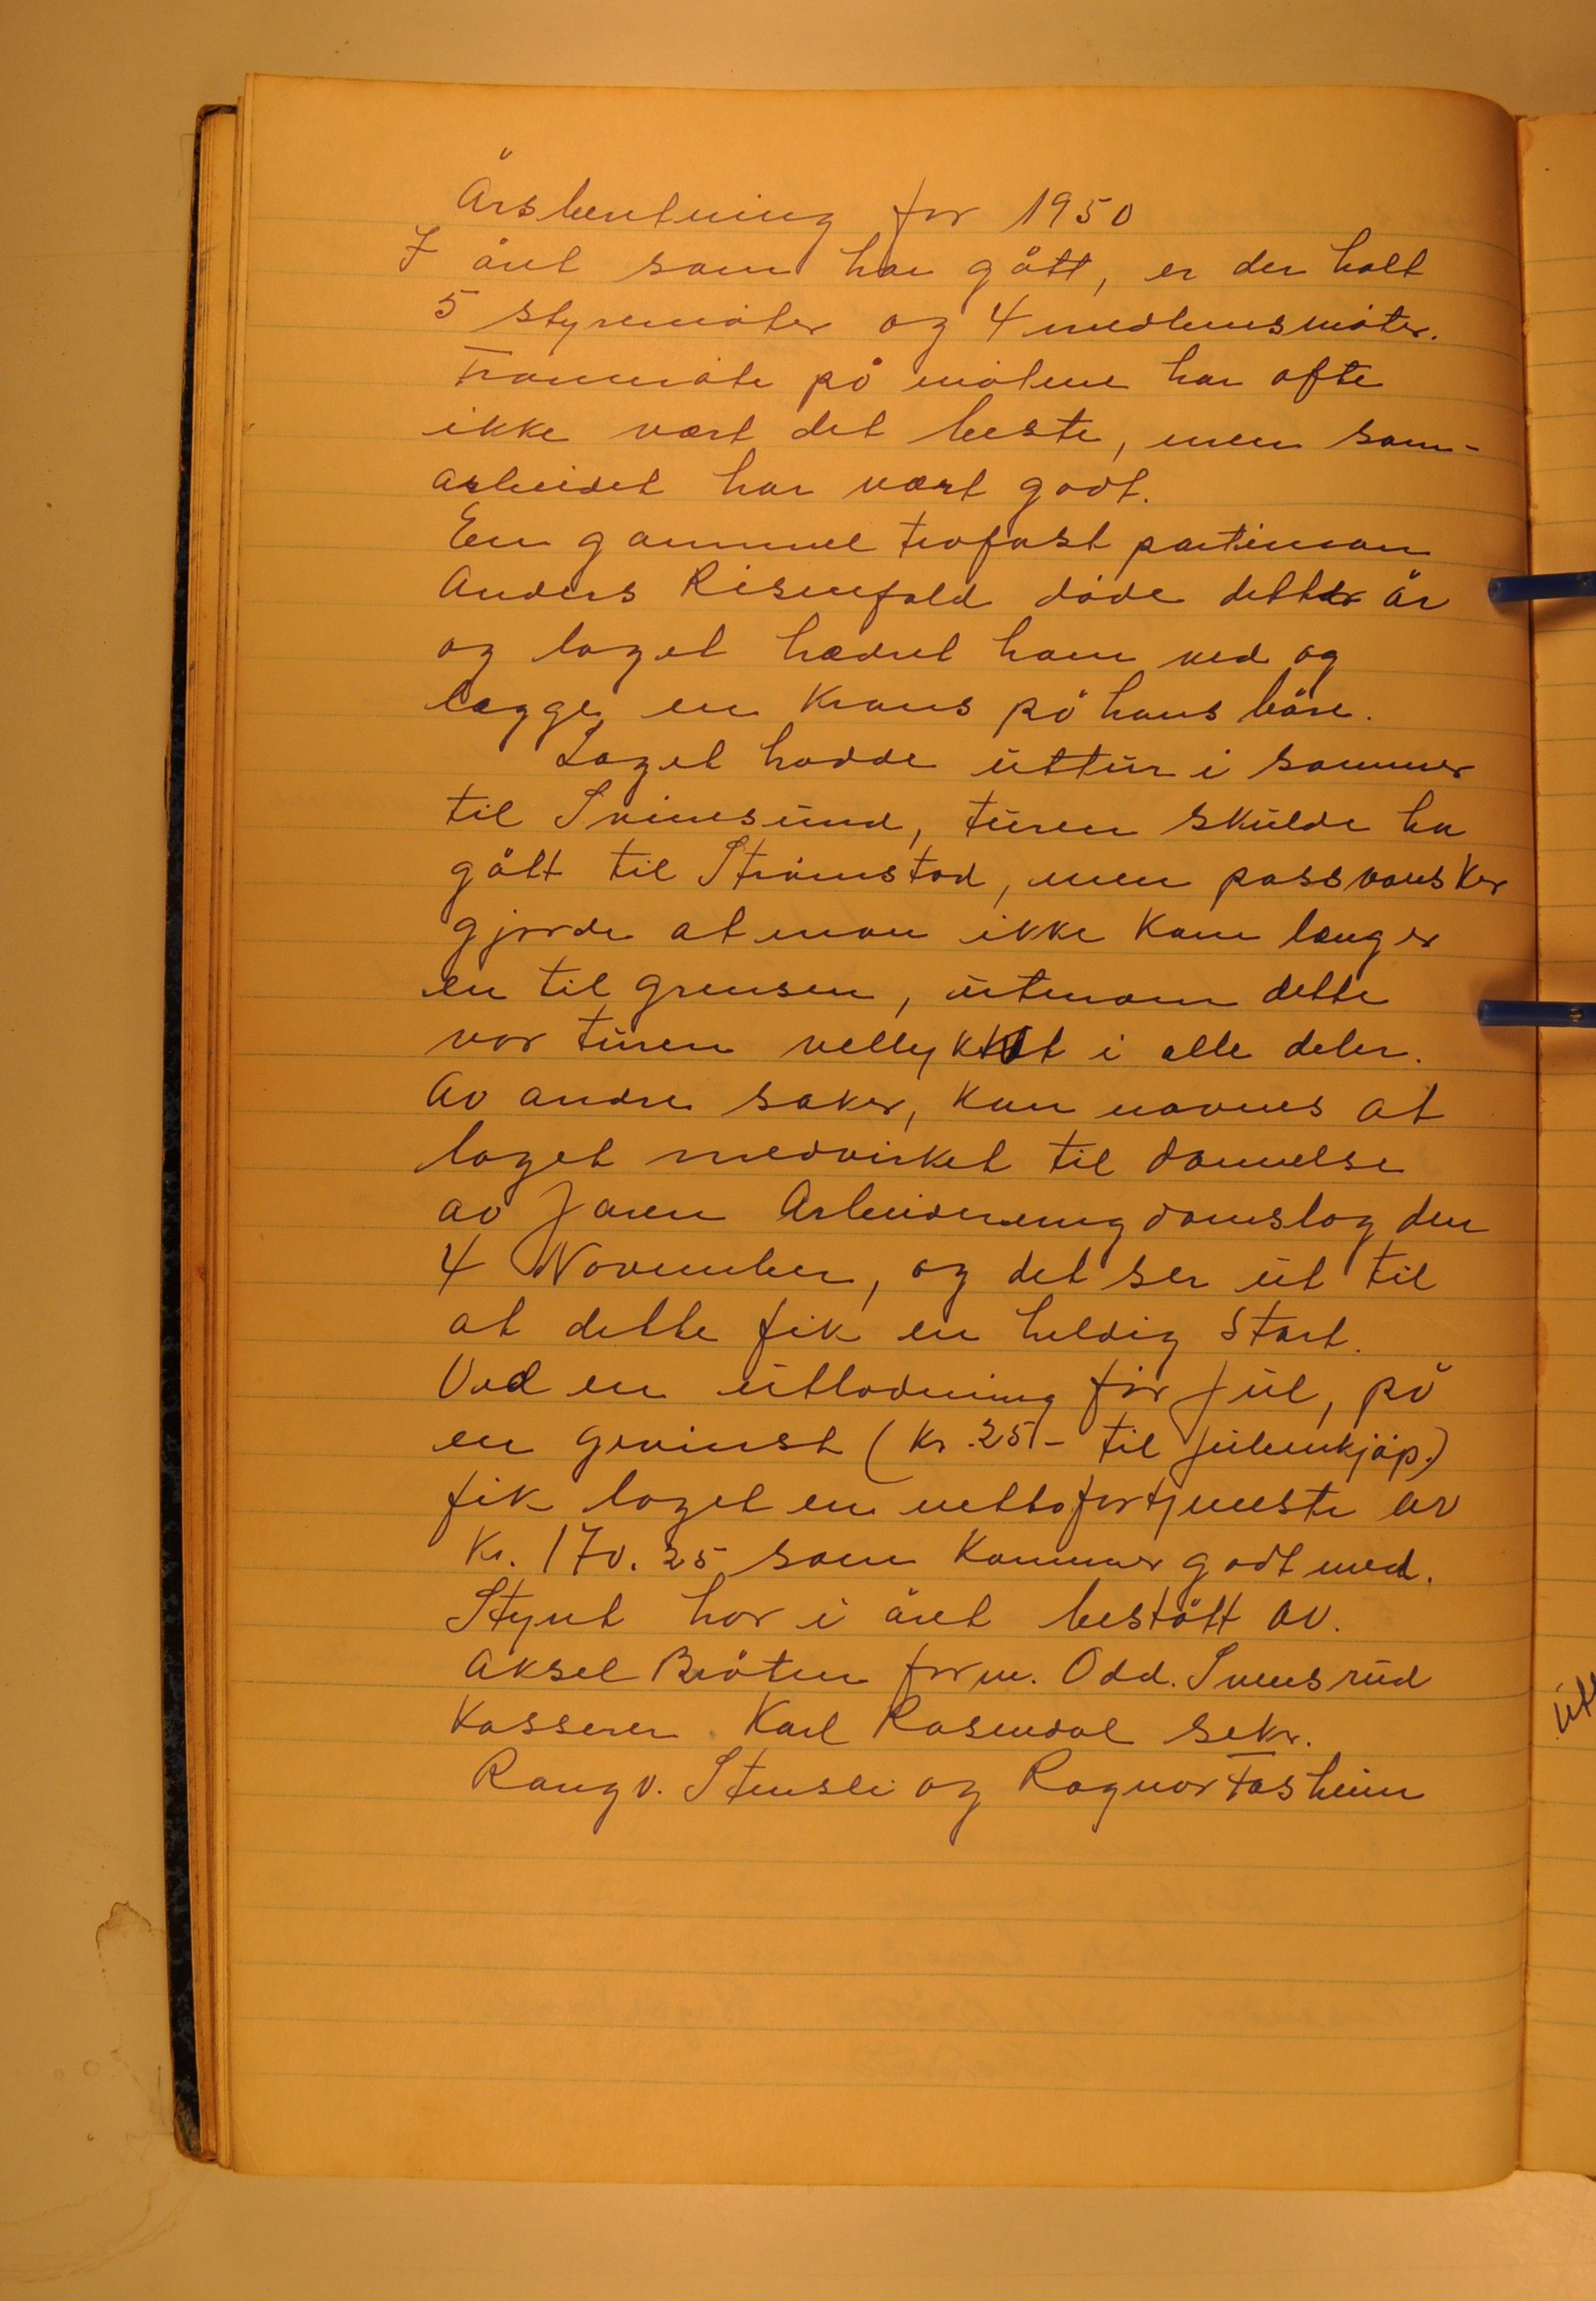 Årsberetning for 1950
I året som har gått, er der holt
5 styremöter og 4 medlemsmöter.
Frammöte på mötene har ofte
ikke vært det beste, men sam-
arbeidet har vært godt.
En gammel trofast partiman
Anders Risenfald döde dette år
og laget hædret ham ved og
legge en Krans på hans båre.
Laget hadde uttur i sommer
til Svinesund, turen skulde ha
gått til Strömstad, men passvansker
gjorde at man ikke Kam lenger
en til grensen, utenom dette
var turen vellykket i alle deler.
Av andre saker, Kan navnes at
laget medvirket til dannelse
av Jaren Arbeiderungdomslag den
4 November, og det ser ut til
at dette fik en heldig Start.
Ved en utlodning för Jul, på
en gevinst (Kr. 25- til Juleinkjöp.)
fik laget en nettofortjeneste av
Kr. 170.25 som Kommer godt med.
Styret har i året bestått av.
Aksel Bråten form. Odd. Svensrud
Kasserer Karl Rosendal sekr.
Rangv. Stensli og Ragnar Fasheim